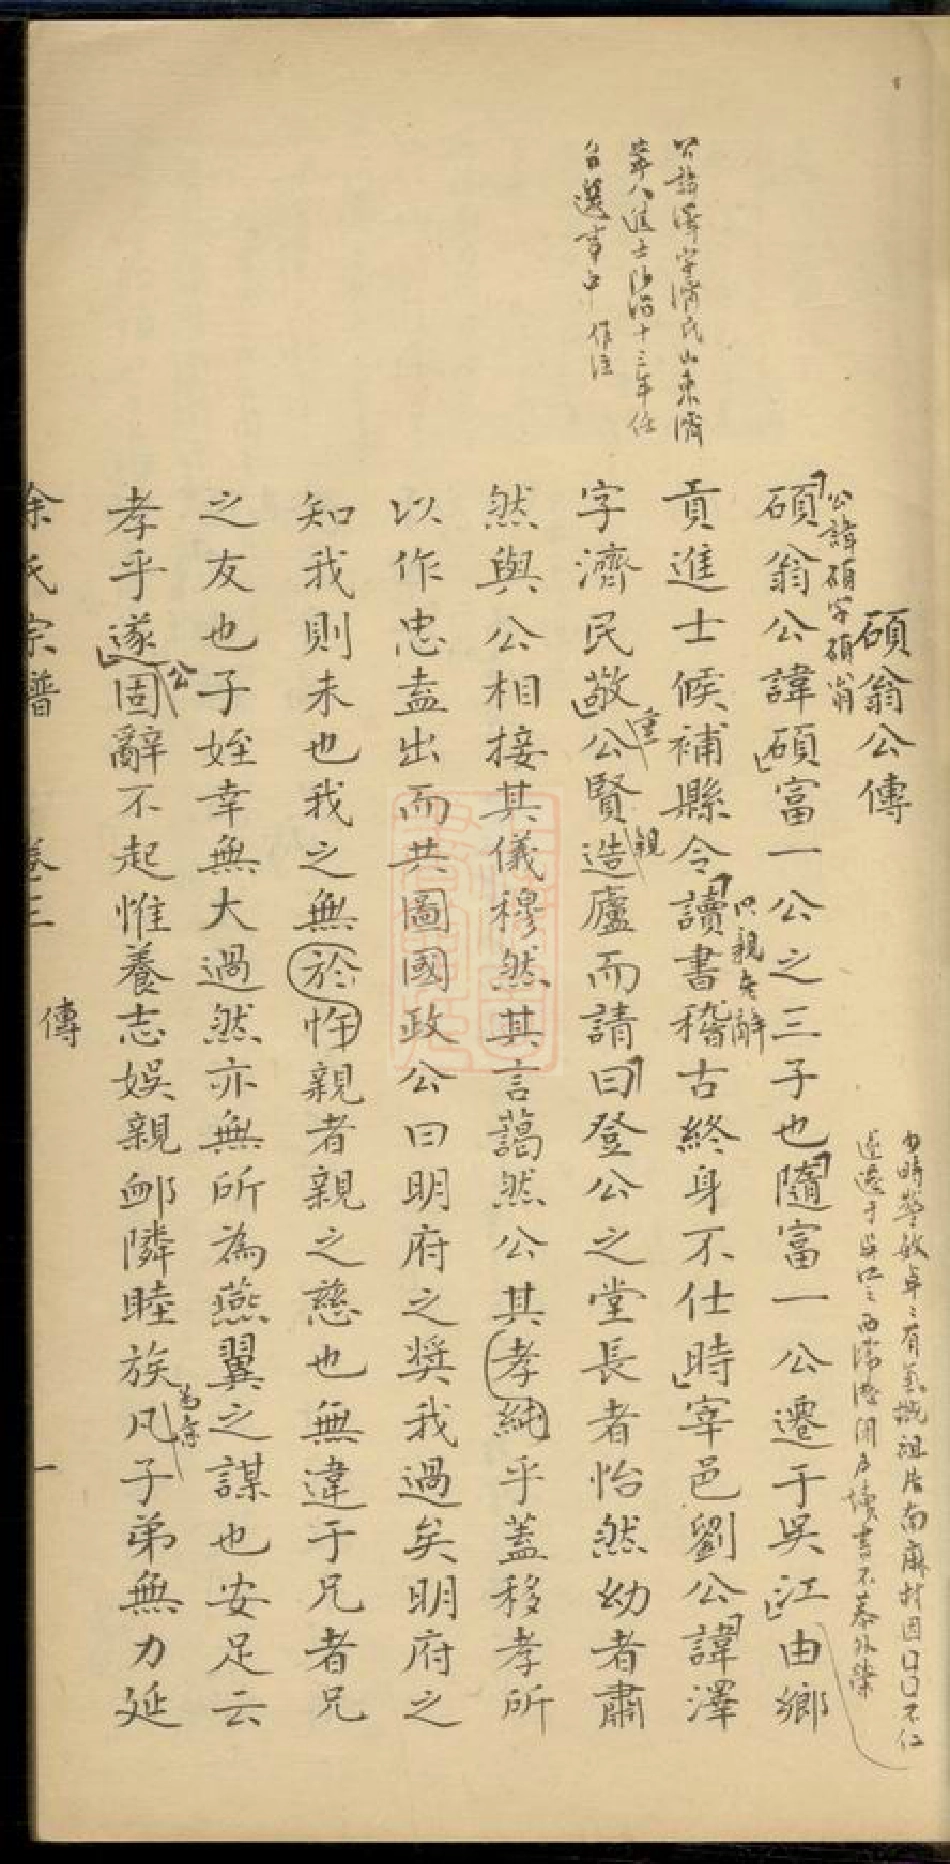 碩翁公傳
公諱碩字碩翁
碩翁公諱碩富一公之三子也隨富一公遷于吳江由鄉
貢進士候補縣令讀書稽古終身不仕時宰邑劉公諱澤
字濟民敬公賢造廬而請曰登公之堂長者怡然幼者肅
然與公相接其儀穆然其言藹然公其孝純乎蓋移孝所
以作忠盍出而共圖國政公曰明府之奬我過矣明府之
知我則未也我之無於忤親者親之慈也無違于兄者兄
之友也子姪幸無大過然亦無所為燕翼之謀也安足云
孝乎遂固辭不起惟養志娛親卹隣睦族凡子弟無力延
余氏宗譜 卷三 傳 一
公諱澤字濟民山東濟
十三年任
作注
以親老辭
重
親
公